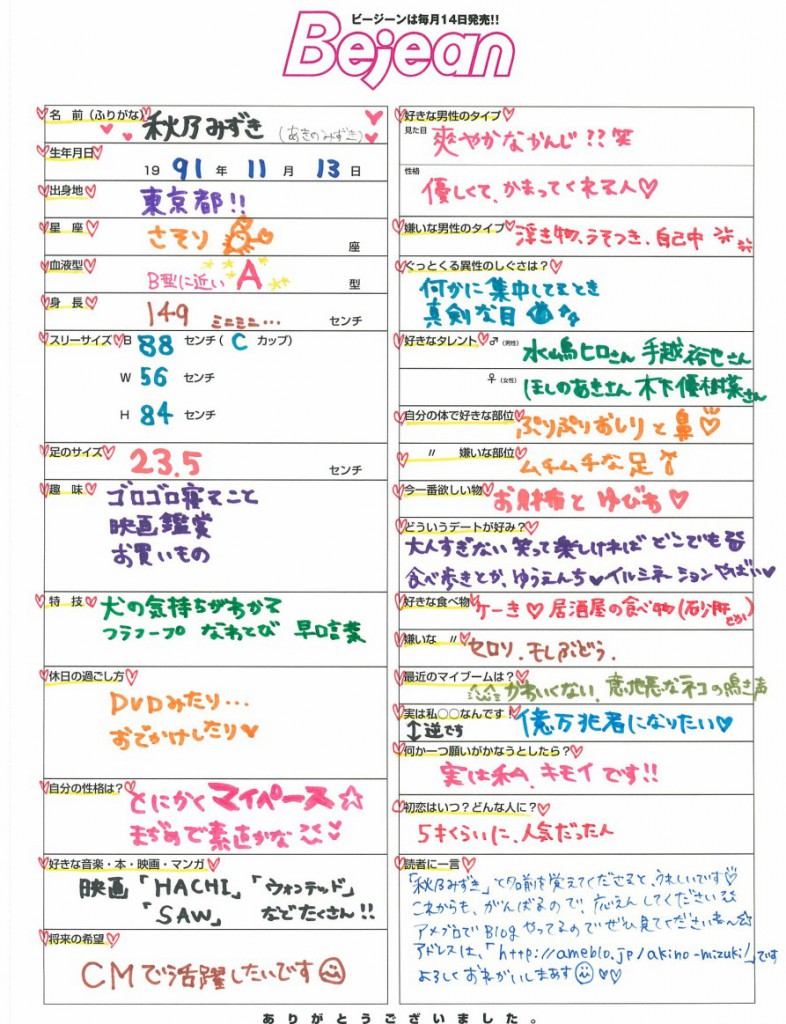 ビージーンは毎月14日発売!!
Bejean
名 前(ふりがな) 秋乃みずき (あきのみずき)
生年月日
1991年11月13日
出身地 東京都!!
星 座 さそり 座
血液型 B型に近い A 型
身 長 149 ミニミニ… センチ
スリーサイズ B 88 センチ( C カップ)
W 56 センチ
H 84 センチ
足のサイズ 23.5 センチ
趣 味 ゴロゴロ寝ること
映画鑑賞
お買いもの
特 技 犬の気持ちがわかる
フラフープ なわとび 早口言葉
休日の過ごし方
DVDみたり…
おでかけしたり♥
自分の性格は? とにかくマイペース☆
まじめで素直かな
好きな音楽・本・映画・マンガ
映画「HACHI」「ウォンテッド」
「SAW」 などたくさん!!
将来の希望
CMで活躍したいです
好きな男性のタイプ
見た目 爽やかなかんじ??笑
性格
優しくて、かまってくれる人♡
嫌いな男性のタイプ 浮き物、うそつき、自己中
ぐっとくる異性のしぐさは?
何かに集中してるとき
真剣な目
好きなタレント ♂(男性) 水嶋ヒロさん 手越祐也さん
♀(女性) ほしのあきさん 木下優樹菜さん
自分の体で好きな部位 ぷりぷりおしりと鼻♡
〃 嫌いな部位 ムチムチな足
今一番欲しい物 お財布と ゆびわ♡
どういうデートが好み?
大人すぎない笑って楽しければどこでも
食べ歩きとか、ゆうえんち♥イルミネーションやばい♥
好きな食べ物 ケーキ♡ 居酒屋の食べ物(砂肝とか)
嫌いな 〃 セロリ、干しぶどう.
最近のマイブームは?
かわいくない、意地悪なネコの鳴き声
実は私○○なんです! 億万兆君になりたい♡
↕逆です
何か一つ願いがかなうとしたら?
実は私、キモイです!!
初恋はいつ?どんな人に?
5才くらいに、人気だった人
読者に一言
「秋乃みずき」と名前を覚えてくださると、うれしいです♡
これからも、がんばるので、応えんしてください
アメブロでBlogやってるのでぜひ見てくださいませ〜☆
アドレスは、「http://ameblo.jp/akino-mizuki/」です
よろしくおねがいしまあす♡♡
ありがとうございました。